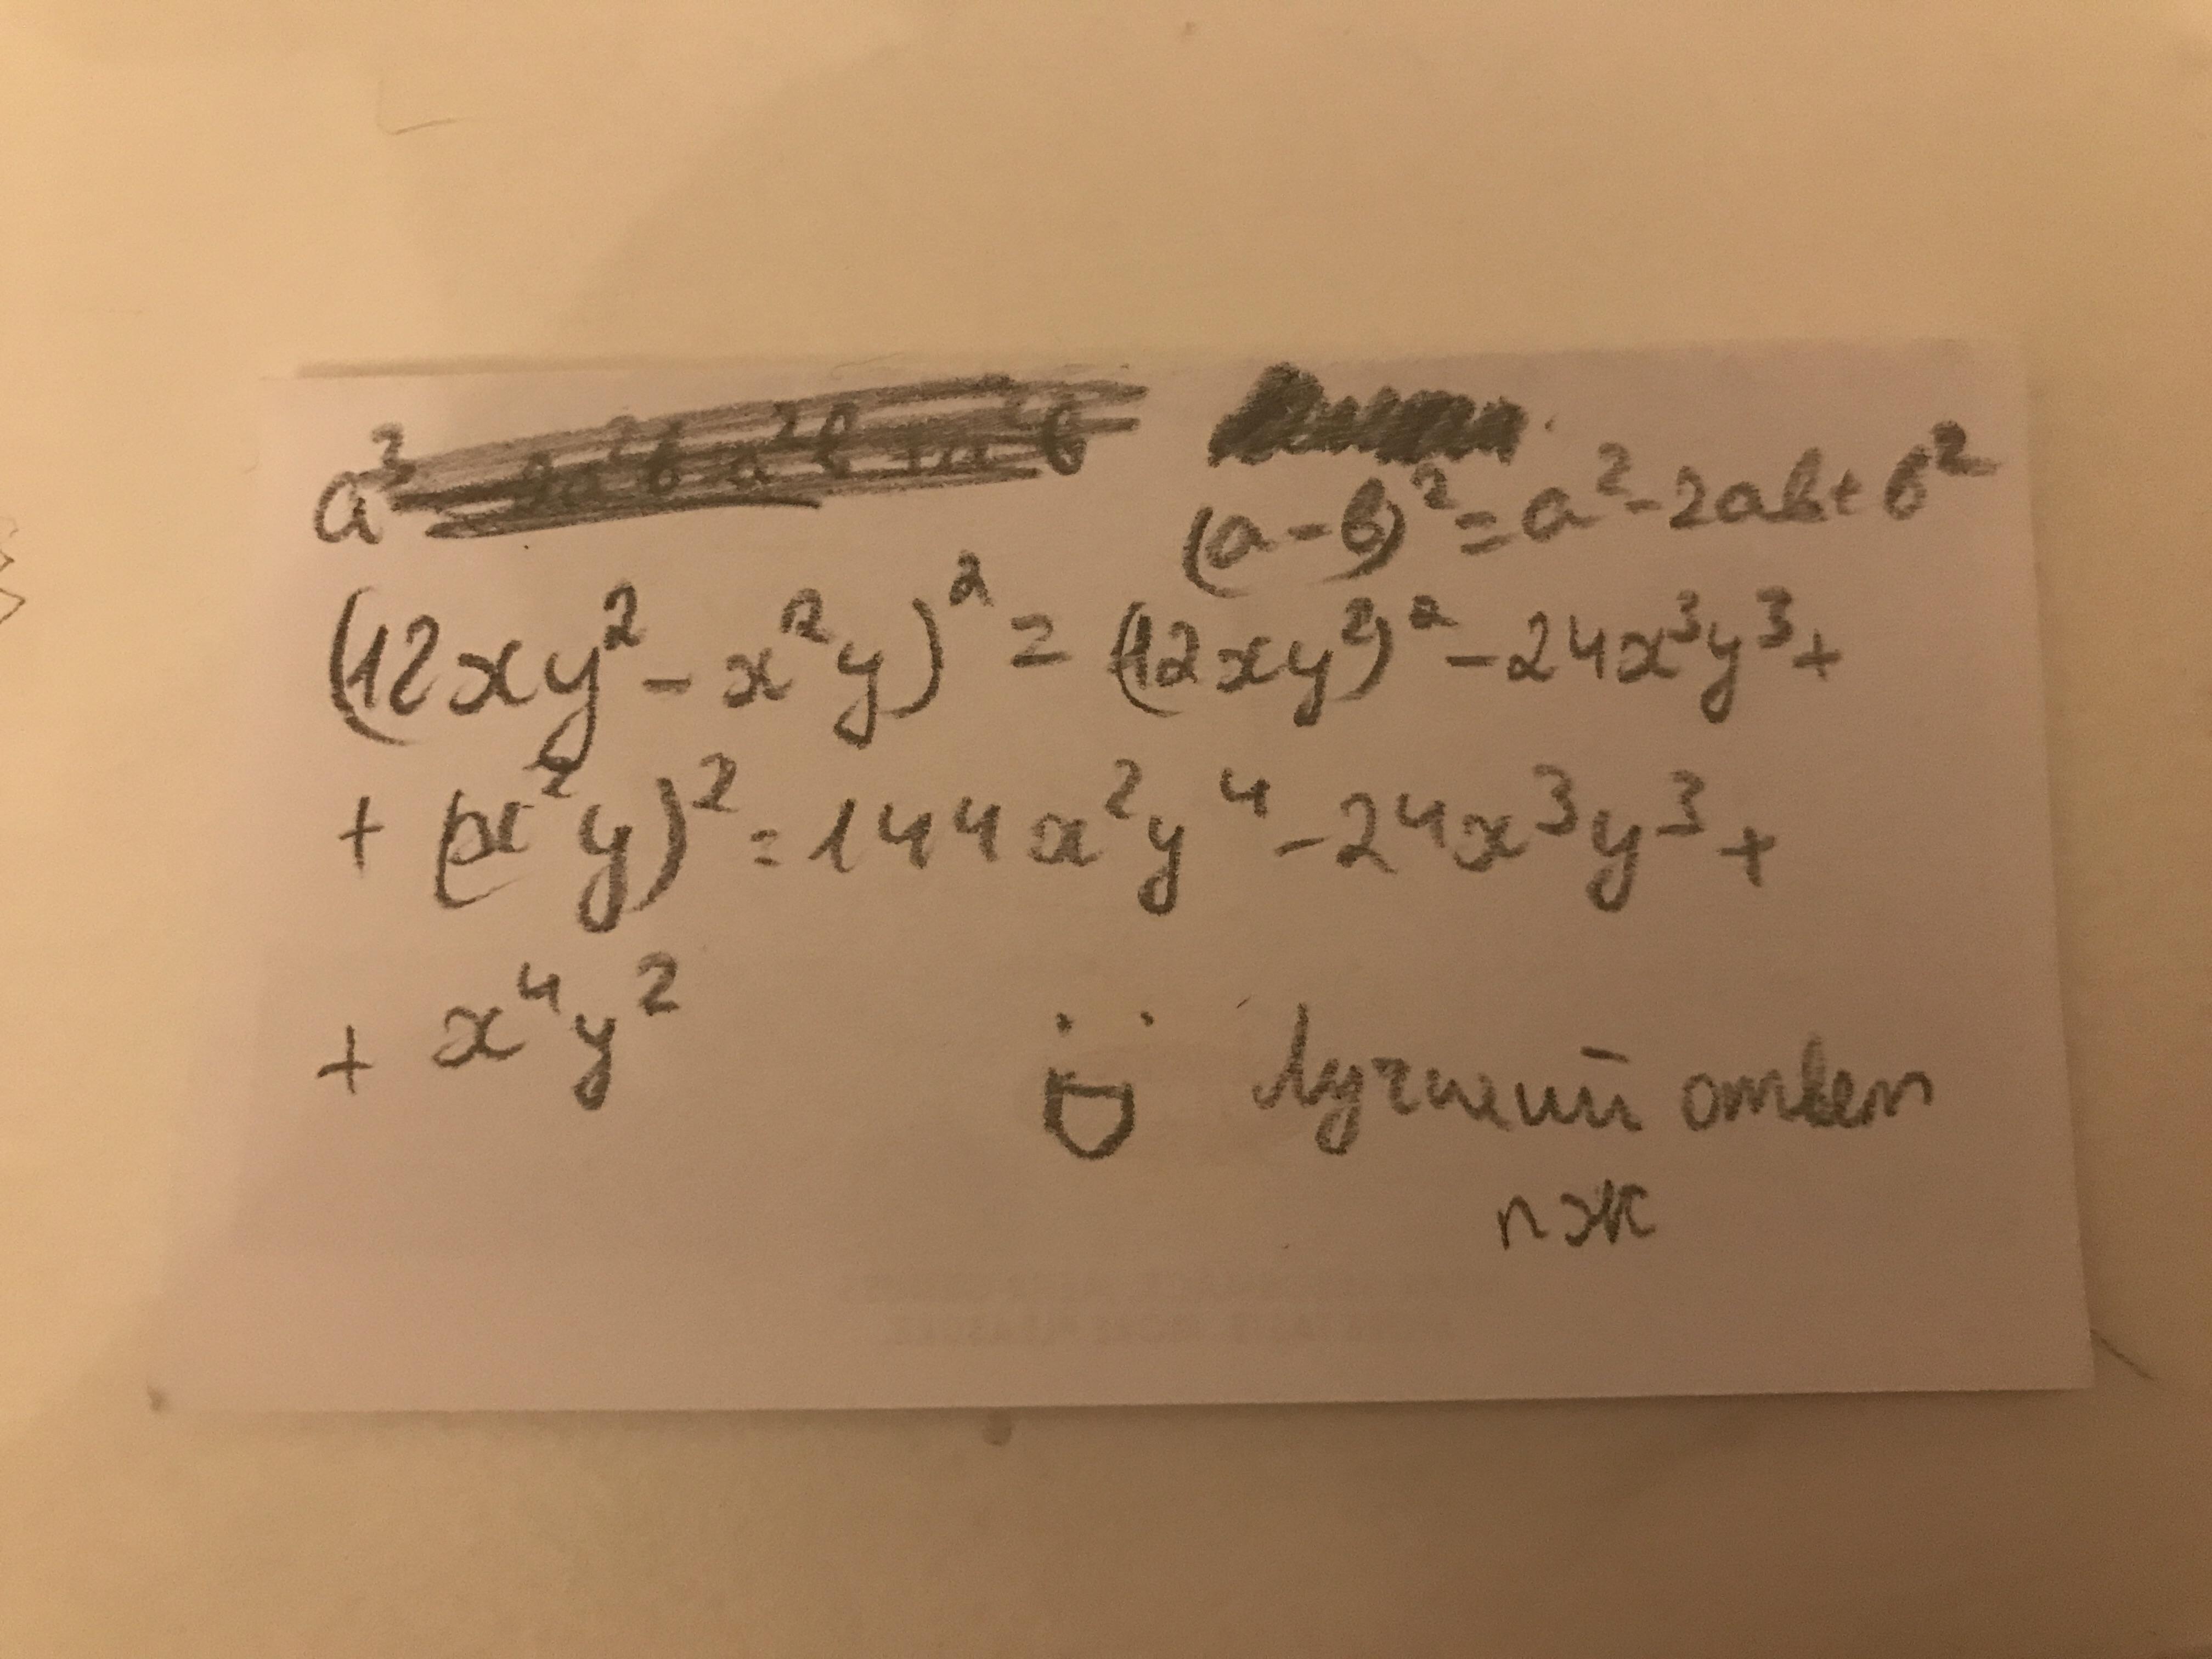 a³
(a-b)² = a² - 2ab + b²
(12xy² - x²y)² = (12xy²)² - 24x³y³ +
+ (x²y)² = 144x²y⁴ - 24x³y³ +
+ x⁴y²
Лучший ответ
пж